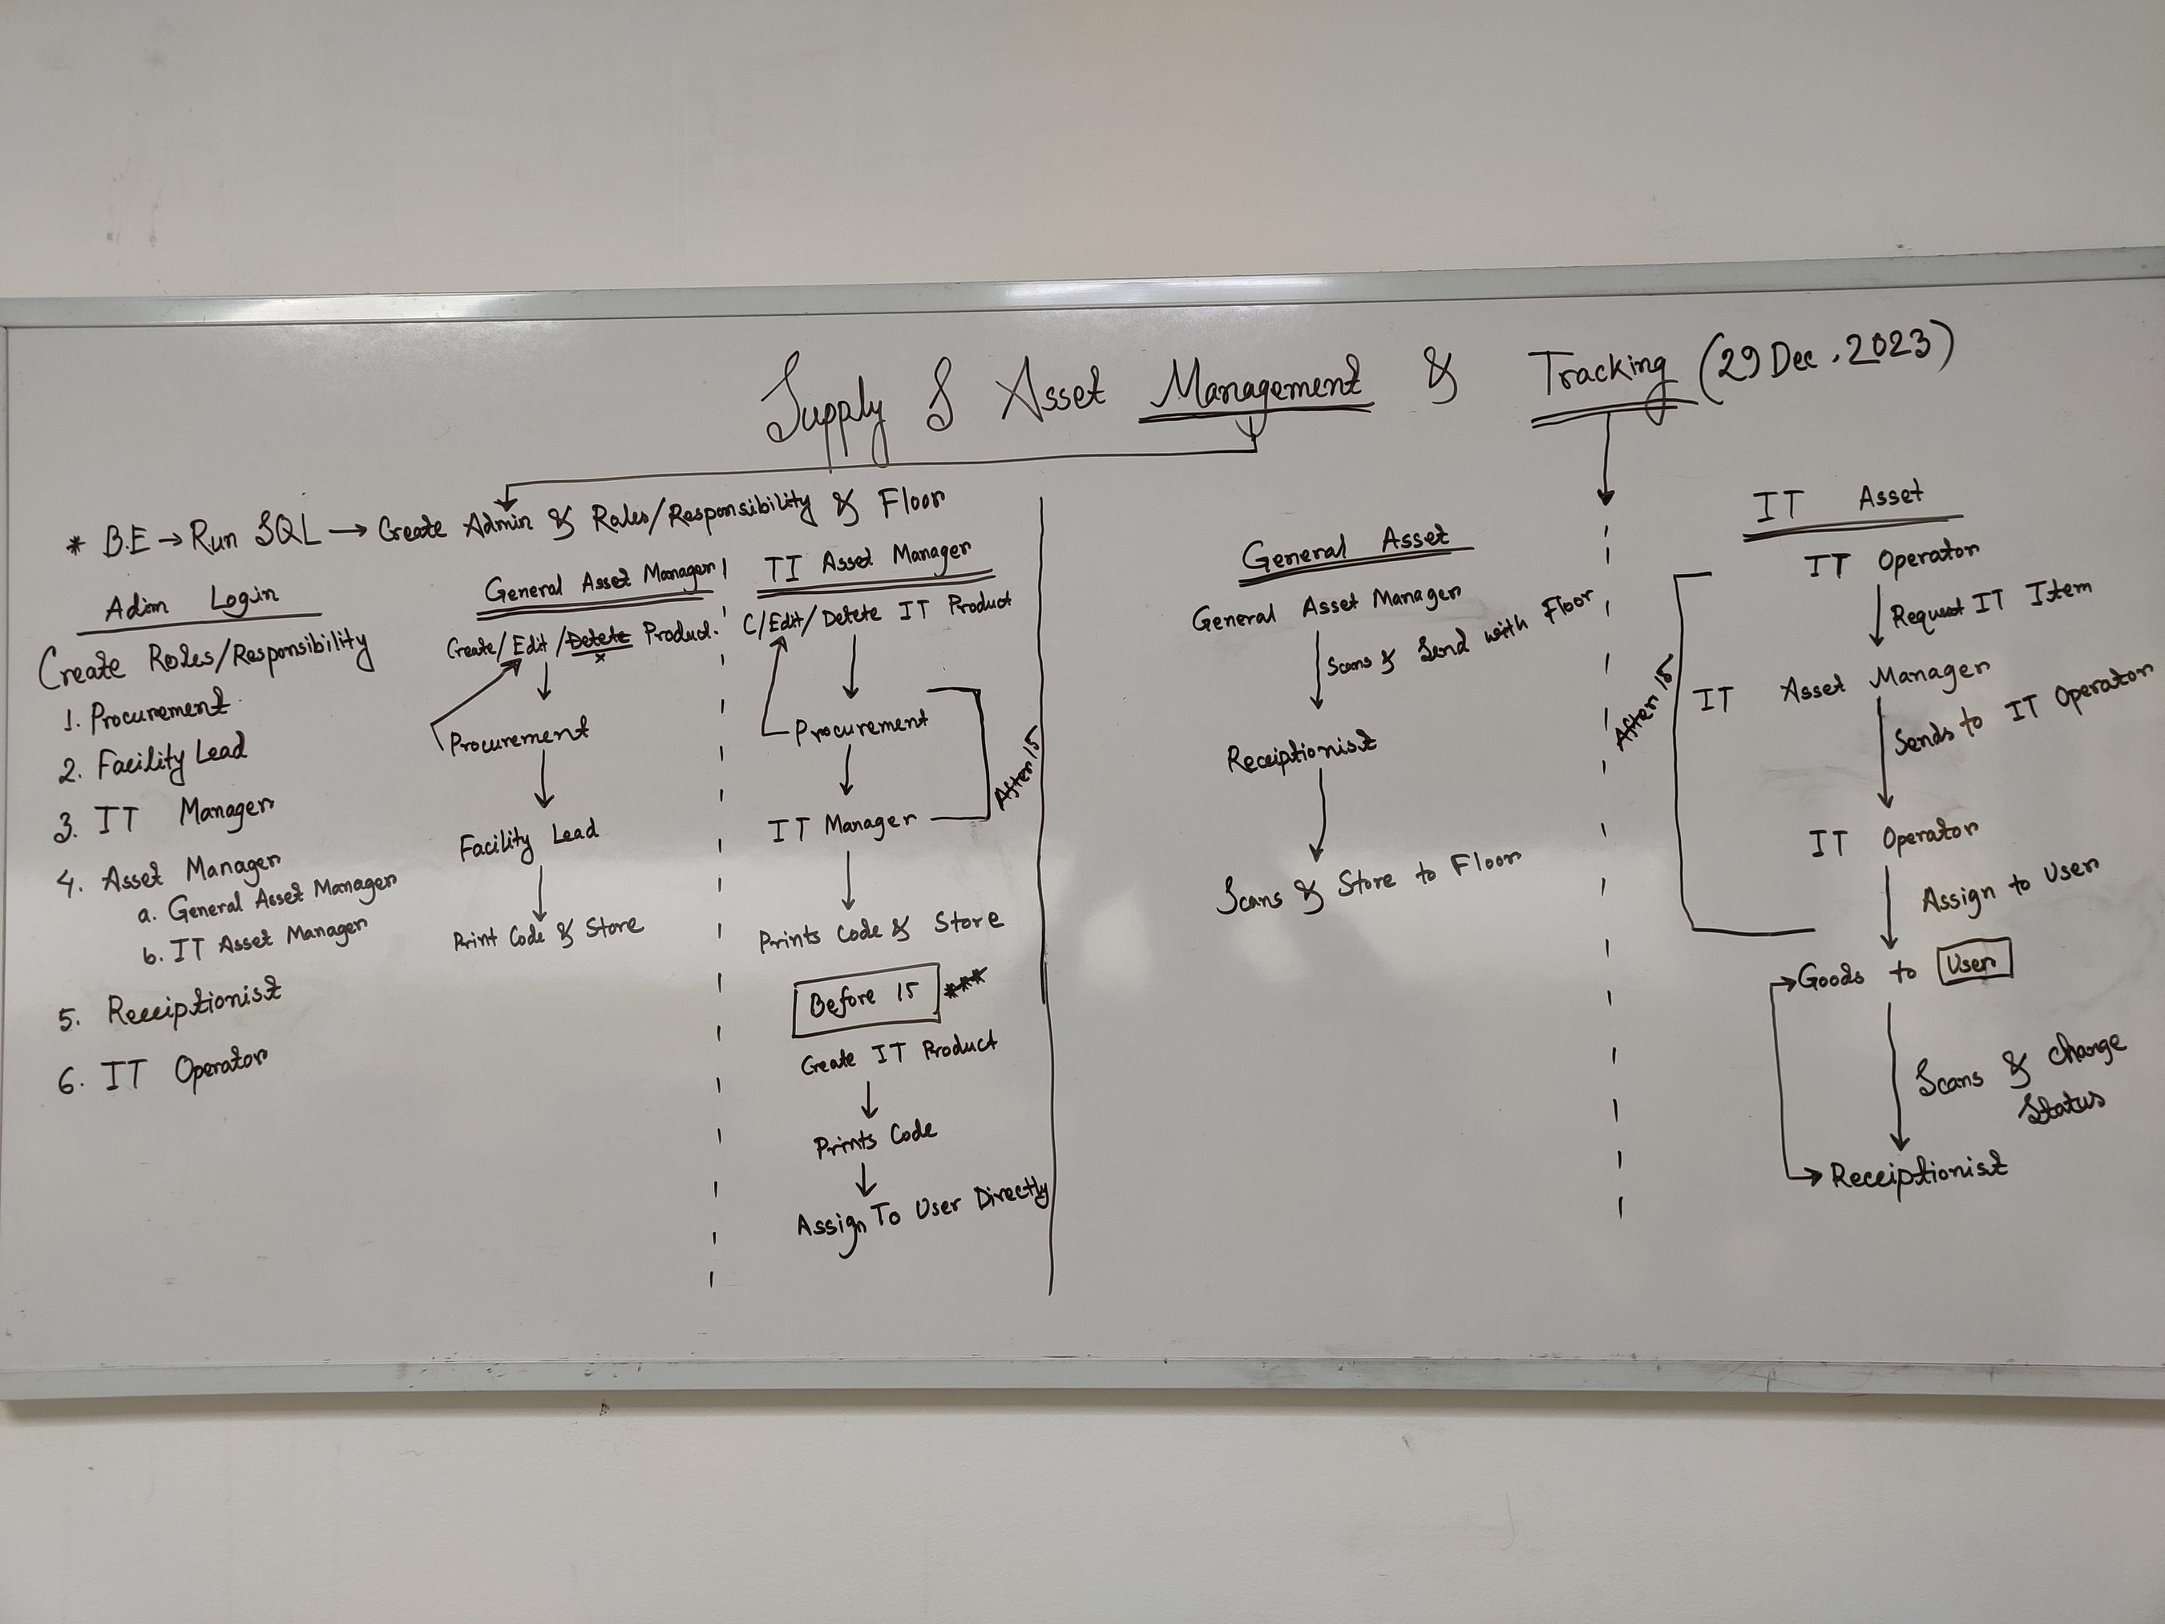 Supply & Asset Management & Tracking (29 Dec, 2023)
* B.E → Run SQL → Create Admin & Roles/Responsibility & Floor
Adim Login
Create Roles/Responsibility
1. Procurement
2. Facility Lead
3. IT Manager
4. Asset Manager
a. General Asset Manager
b. IT Asset Manager
5. Receiptionist
6. IT Operator
General Asset Manager
Create/Edit/Delete Product.
x
Procurement
Facility Lead
Print Code & Store
TI Asset Manager
C/Edit/Delete IT Product
Procurement
IT Manager
After 15
Prints Code & Store
Before 15 ***
Create IT Product
Prints Code
Assign To User Directly
General Asset
General Asset Manager
Scans & Send with Floor
Receiptionist
Scans & Store to Floor
IT Asset
IT Operator
Request IT Item
IT Asset Manager
After 15
Sends to IT Operator
IT Operator
Assign to User
Goods to User
Scans & change
Status
Receiptionist